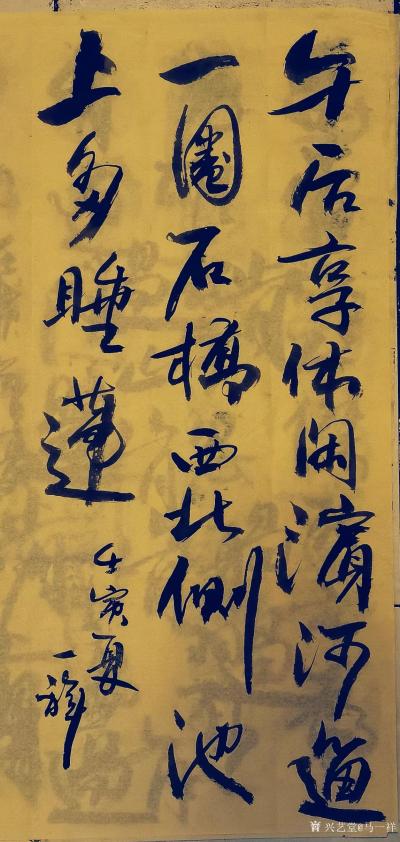 午后享休闲濱河遛
一圈石橋西北側池
上多睡蓮
壬寅夏
一祥
兴艺堂@马一祥